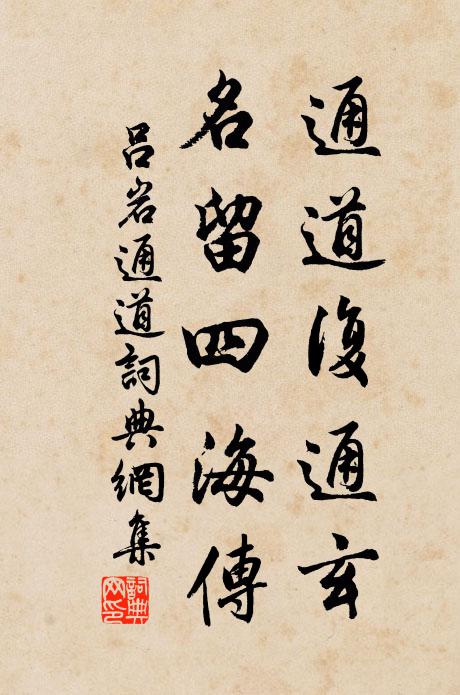 通道復通玄
名留四海傳
吕岩通道詞典網集
詞典網印